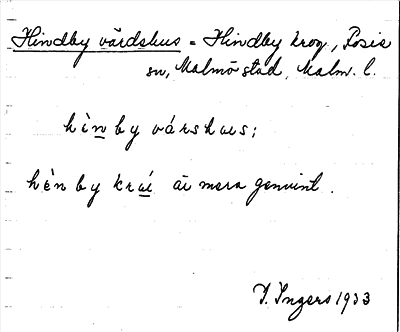 Hindby värdshus = Hindby krog, Rosis
sn, Malmö stad, Malm. l.
hìnby várshus;
hènby kraí är mera genuint.
I. Ingers 1933